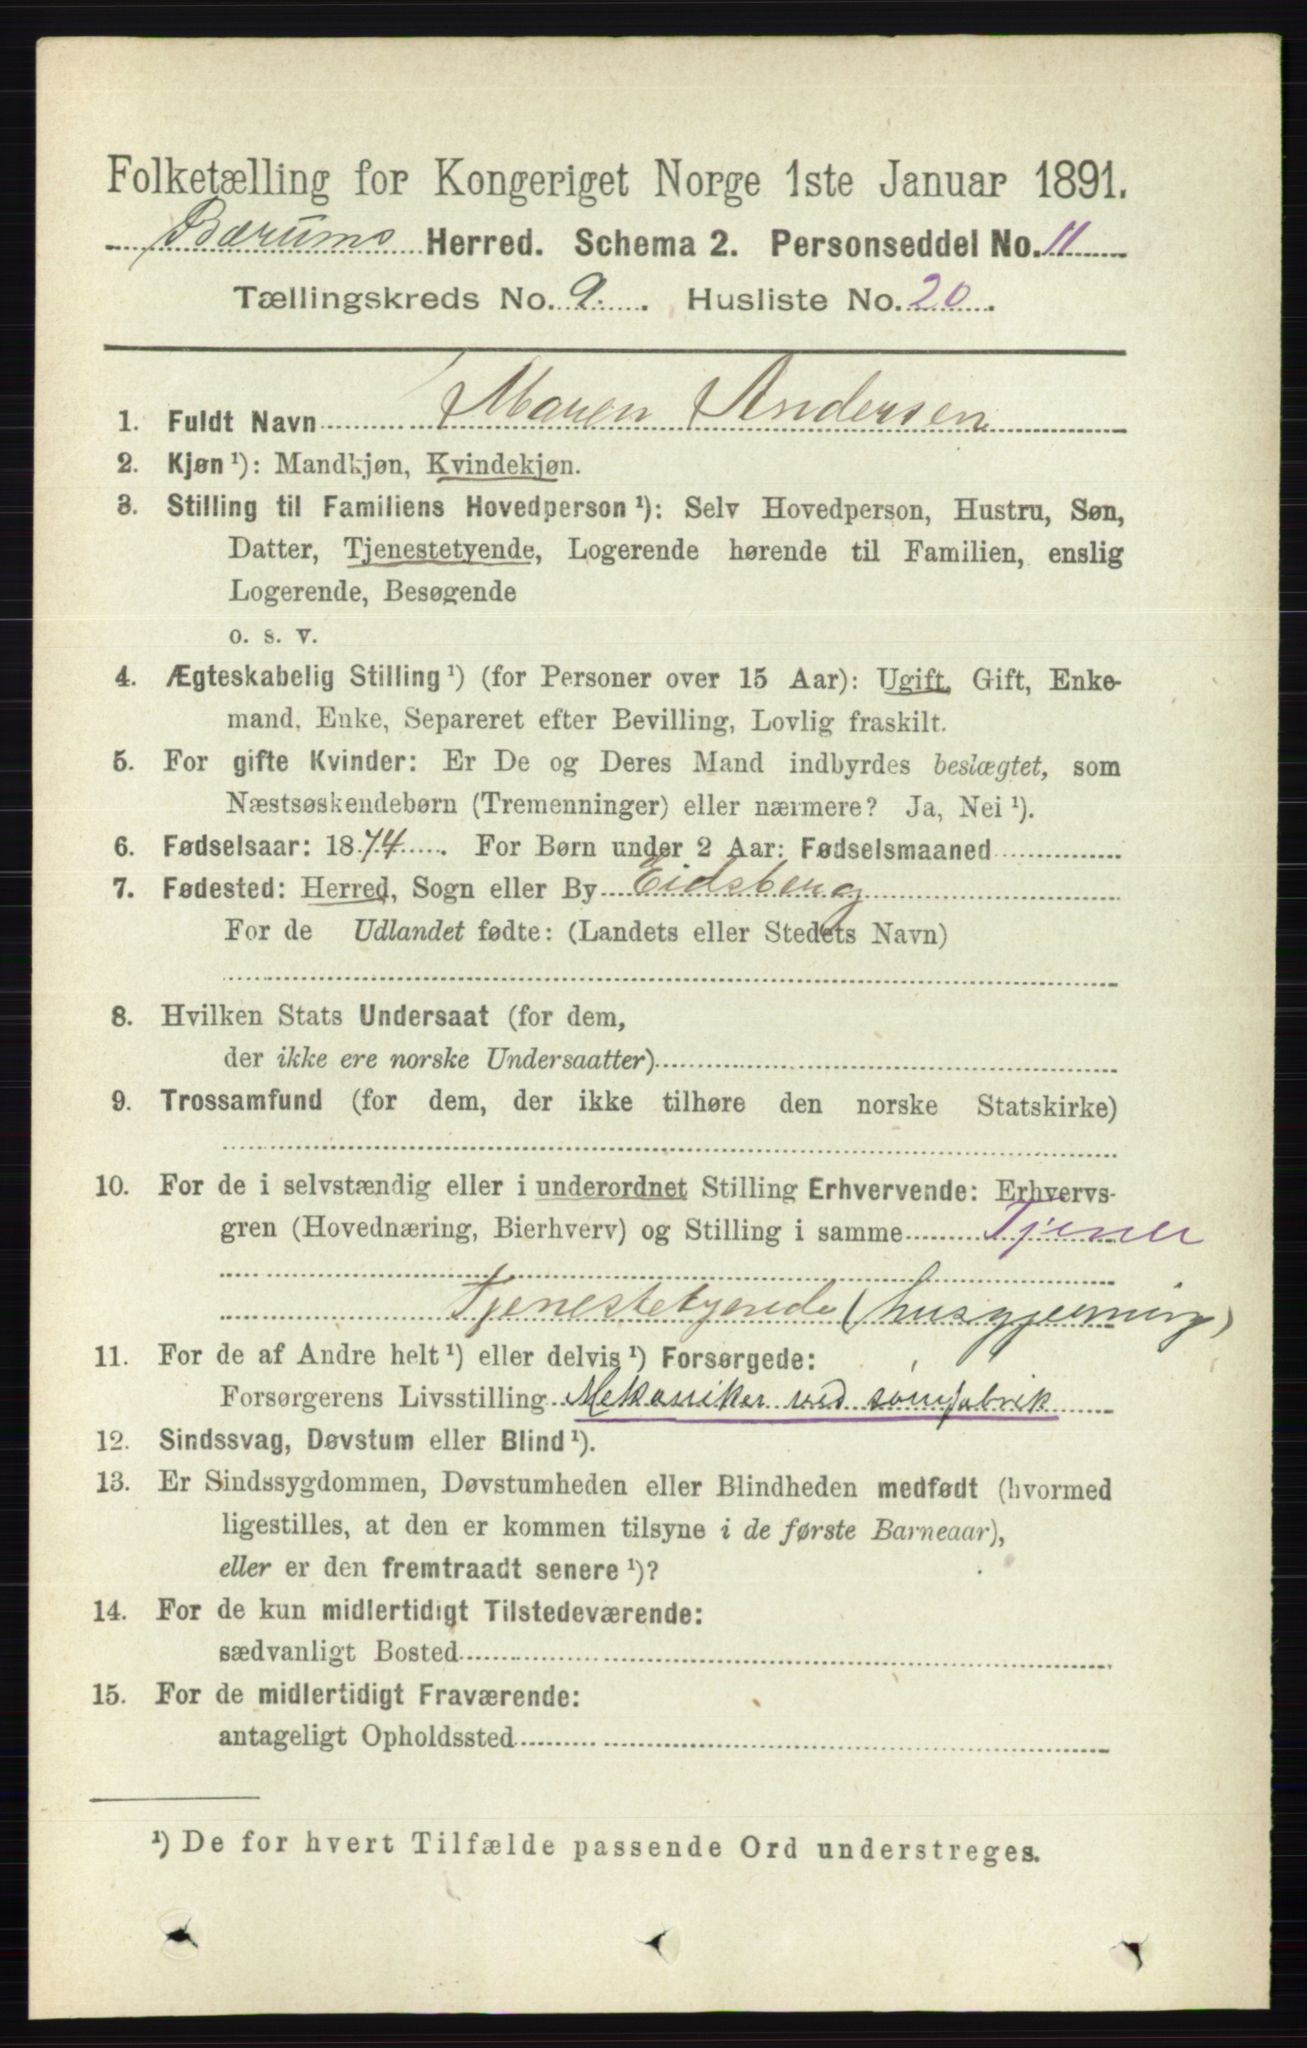 Folketælling for Kongeriget Norge 1ste Januar 1891.
Bærums Herred. Schema 2. Personseddel No. 11
Tællingskreds No. 9. Husliste No. 20.
1. Fuldt Navn Maren Andersen
2. Kjøn ¹): Mandkjøn, Kvindekjøn.
3. Stilling til Familiens Hovedperson ¹): Selv Hovedperson, Hustru, Søn,
Datter, Tjenestetyende, Logerende hørende til Familien, enslig
Logerende, Besøgende
o. s. v.
4. Ægteskabelig Stilling ¹) (for Personer over 15 Aar): Ugift, Gift, Enke-
mand, Enke, Separeret efter Bevilling, Lovlig fraskilt.
5. For gifte Kvinder: Er De og Deres Mand indbyrdes beslægtet, som
Næstsøskendebørn (Tremenninger) eller nærmere? Ja, Nei ¹).
6. Fødselsaar: 1874. For Børn under 2 Aar: Fødselsmaaned
7. Fødested: Herred, Sogn eller By Eidsberg
For de Udlandet fødte: (Landets eller Stedets Navn)
8. Hvilken Stats Undersaat (for dem,
der ikke ere norske Undersaatter)
9. Trossamfund (for dem, der ikke tilhøre den norske Statskirke)
10. For de i selvstændig eller i underordnet Stilling Erhvervende: Erhvervs-
gren (Hovednæring, Bierhverv) og Stilling i samme Tjener
Tjenestetyende (husgjerning)
11. For de af Andre helt ¹) eller delvis ¹) Forsørgede:
Forsørgerens Livsstilling Mekaniker ved sømfabrik
12. Sindssvag, Døvstum eller Blind ¹).
13. Er Sindssygdommen, Døvstumheden eller Blindheden medfødt (hvormed
ligestilles, at den er kommen tilsyne i de første Barneaar),
eller er den fremtraadt senere ¹)?
14. For de kun midlertidigt Tilstedeværende:
sædvanligt Bosted
15. For de midlertidigt Fraværende:
antageligt Opholdssted
¹) De for hvert Tilfælde passende Ord understreges.